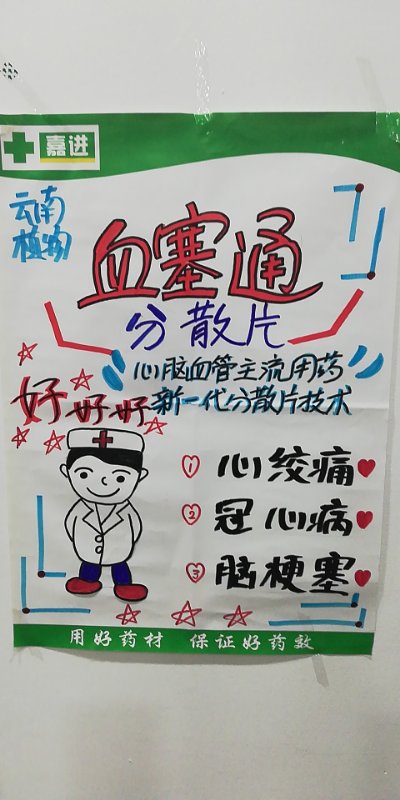 嘉进
云南
植物
血塞通
分散片
心脑血管主流用药
好好好新一代分散片技术
1 心绞痛
2 冠心病
3 脑梗塞
用好药材 保证好药效